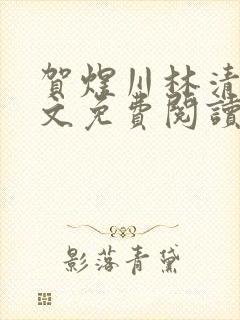 賀煜川林清
文免費閱讀
影落青黛